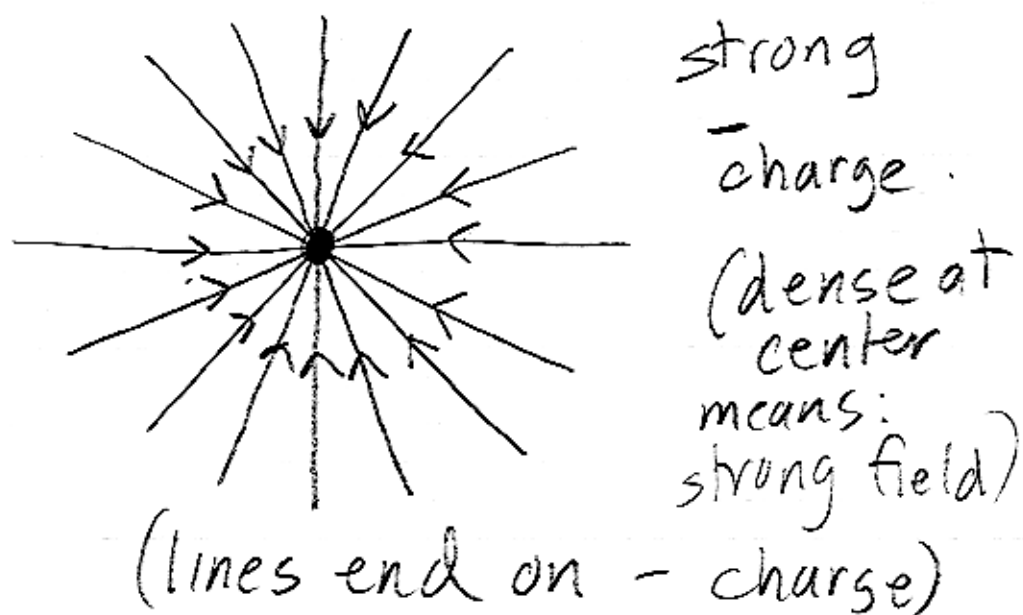 strong
- charge.
(dense at
center
means:
strong field)
(lines end on - charge)